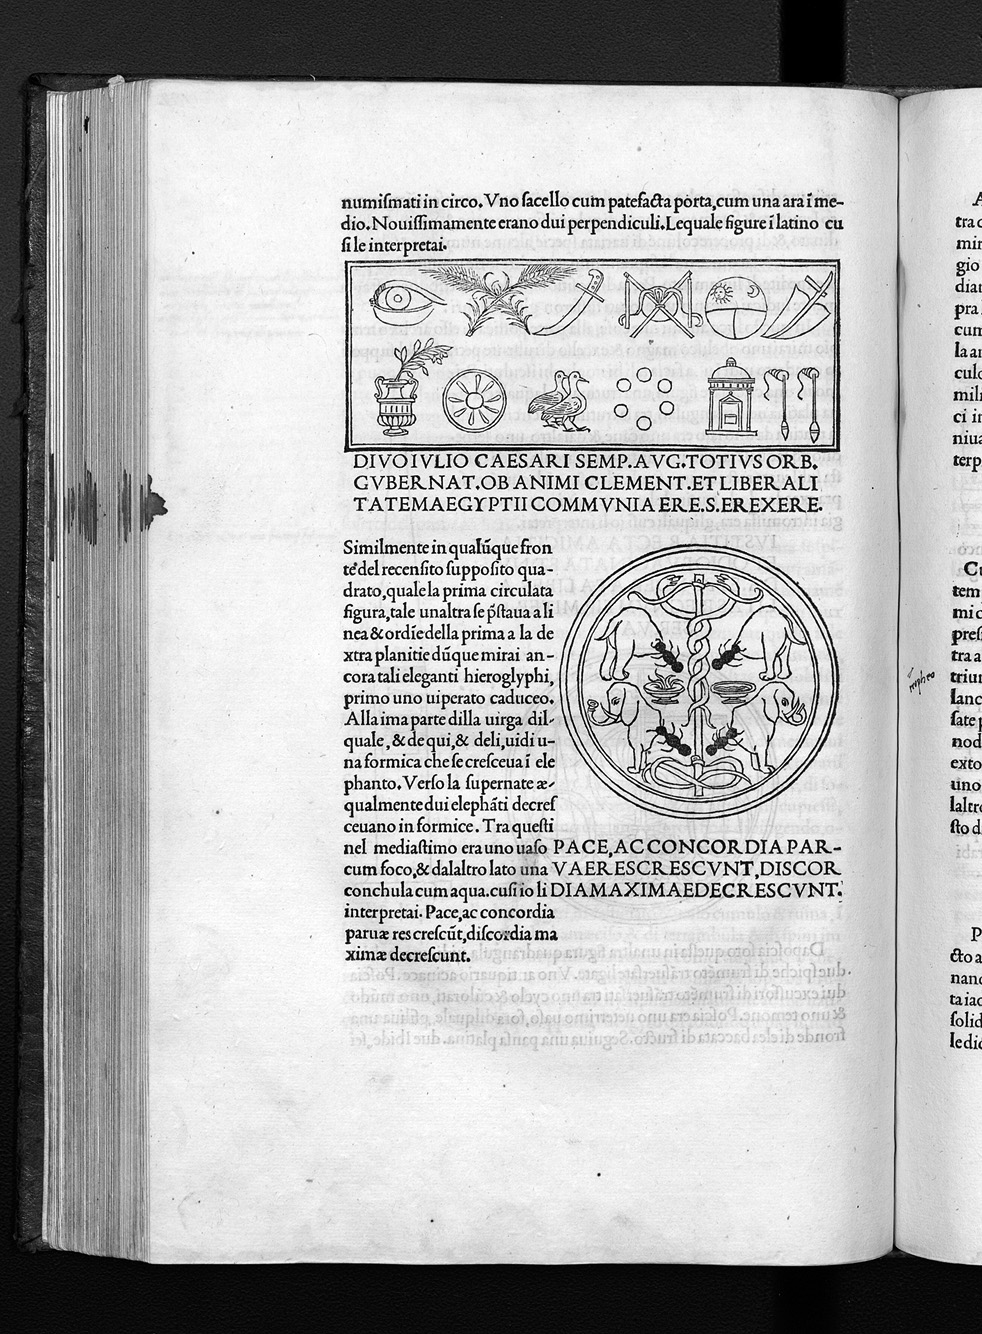 numiſmati in circo. Vno ſacello cum patefacta porta, cum una ara ĩ me-
dio. Nouiſſimamente erano dui perpendiculi. Lequale figure ĩ latino cu
ſi le interpretai.
DIVO IVLIO CAESARI SEMP. AVG. TOTIVS ORB.
GVBERNAT. OB ANIMI CLEMENT. ET LIBER ALI
TATEM AEGYPTII COMMVNI A ERE. S. EREXERE.
Similmente in qualũque fron
te del recenſito ſuppoſito qua-
drato, quale la prima circulata
figura, tale unaltra ſe p̃ſtaua a li
nea & ordĩe della prima a la de
xtra planitie dũque mirai an-
cora tali eleganti hieroglyphi,
primo uno uiperato caduceo.
Alla ima parte dilla uirga dil-
quale, & de qui, & deli, uidi u-
na formica che ſe creſceua ĩ ele
phanto. Verſo la ſupernate æ-
qualmente dui elephãti decreſ
ceuano in formice. Tra queſti
nel mediaſtimo era uno uaſo
cum foco, & dalaltro lato una
conchula cum aqua. cuſi io li
interpretai. Pace, ac concordia
paruæ res creſcũt, diſcordia ma
ximæ decreſcunt.
PACE, AC CONCORDIA PAR-
VAE RES CRESCVNT, DISCOR
DIA MAXIMAE DECRESCVNT.
tra
gio
pra
cum
culo
mili
ci
terp
Cu
tem
mi
tra a
uno